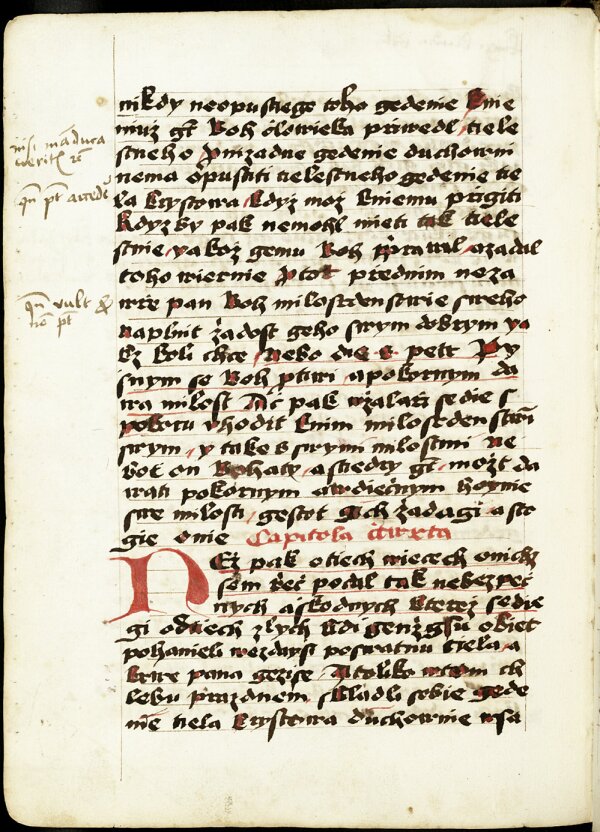 nikdy neopustiege toho gedenie knie
muz gt Boh clowieka priwedl tiele
stneho Pnizadne gedenie duchowni
nema opustiti tielestneho gedenie tie
la krystowa kdyz moz kniemu prigiti
kdyzby pak nemohl mieti tak tiele
stnie yakoz gemu Boh azadal
toho wiernie prednim neza
wrze pan Boh milosrdenstwie sweho
naplnit żadost geho swym dobrym ya
kz koli chce Nebo die s petr Py
snym se Boh ptiwi apokornym da
wa milost Ac pak sedie s
pokoru vhodit knim milosrdenstwi
swym y take s swymi milostmi Ne
bot on Bohaty astiedry gt mozt da
wati pokornym awdiecnym hoynie
swe milosti gestot gich żadagi asto
gie onie Capitola cztwrta
NEz pak otiech wiecech onichz
sem rzec pocal tak nebezpec
nych askodnych kterez sedie
gi odtiech zlych lidi genzgsu obiet
pohanieli wezdaysi poswatnu tiela a
krwe pana gezise Atoliko wtom ch
lebu prazdnem skladli sobie gede
nie tiela krystowa duchownie wsa
nisi māduca
qn pt accede
qn vult &
nō pt